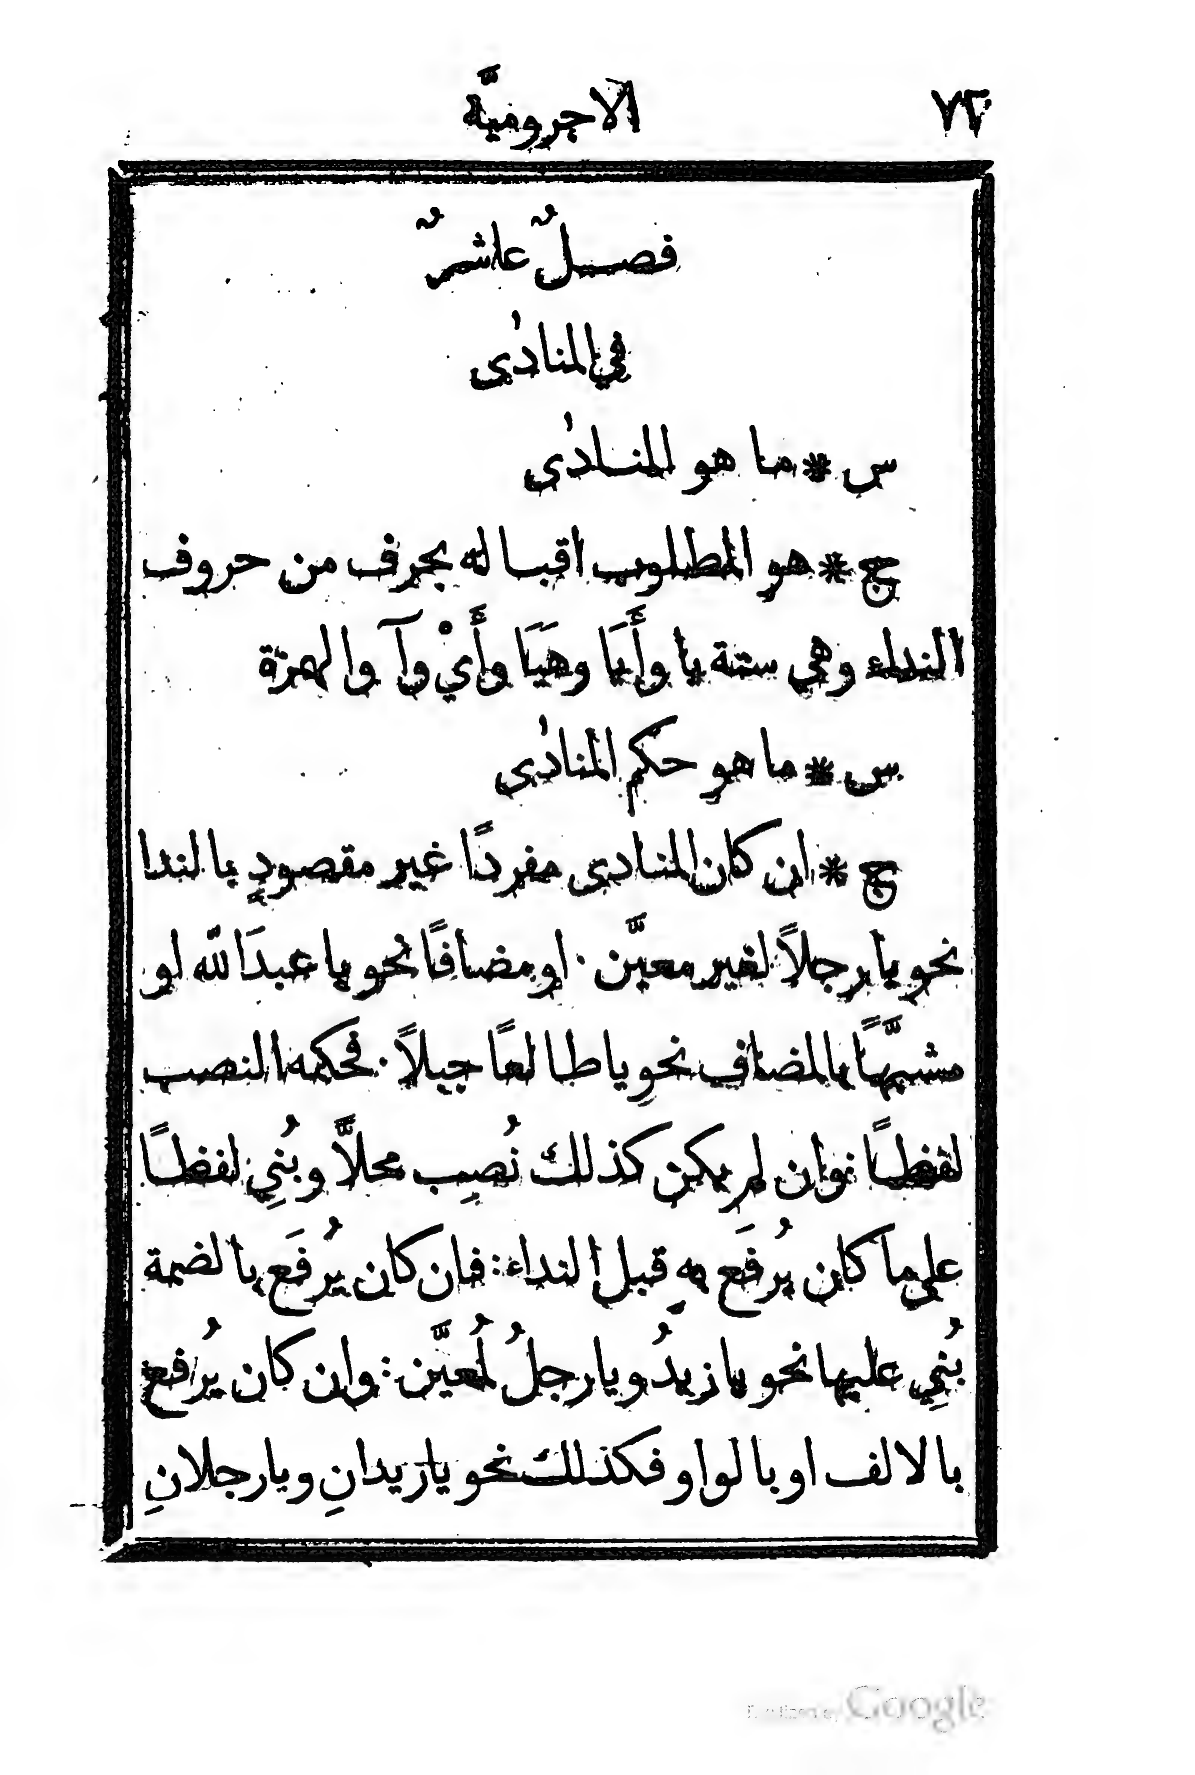 ٧٢ الاجروميَّة
فصلٌ عاشرٌ
في المنادٰى
س * ما هو المنادٰى
ج * هو المطلوب اقباله بحرف من حروف
النداء وهي ستة يا وأَيَا وهَيَا وأَيْ وآ والهمزة
س * ما هو حكم المنادٰى
ج * ان كان المنادى مفردًا غير مقصودٍ بالندا
نحو يا رجلاً لغير معيَّن · او مضافًا نحو يا عبدَ الله او
مشبَّهًا بالمضاف نحو يا طالعًا جبلاً · فحكمه النصب
لفظًا وان لم يكن كذلك نُصِب محلاًّ وبُنِي لفظًا
على ما كان يُرفَع بهِ قبل النداء: فان كان يُرفَع بالضمة
بُنِي عليها نحو يا زيدُ ويا رجلُ لمُعيَّن: وان كان يُرفع
بالالف او بالواو فكذلك نحو يا زيدانِ ويا رجلانِ
Digitized by Google